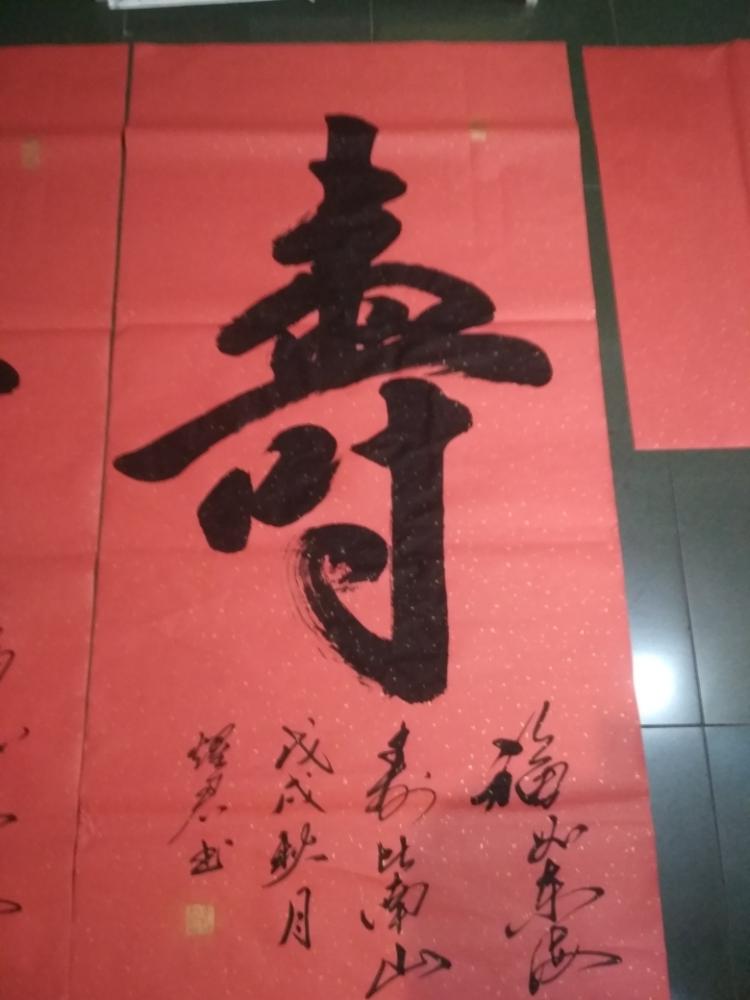 壽
福如东海
寿比南山
戊戌秋月
煜君书